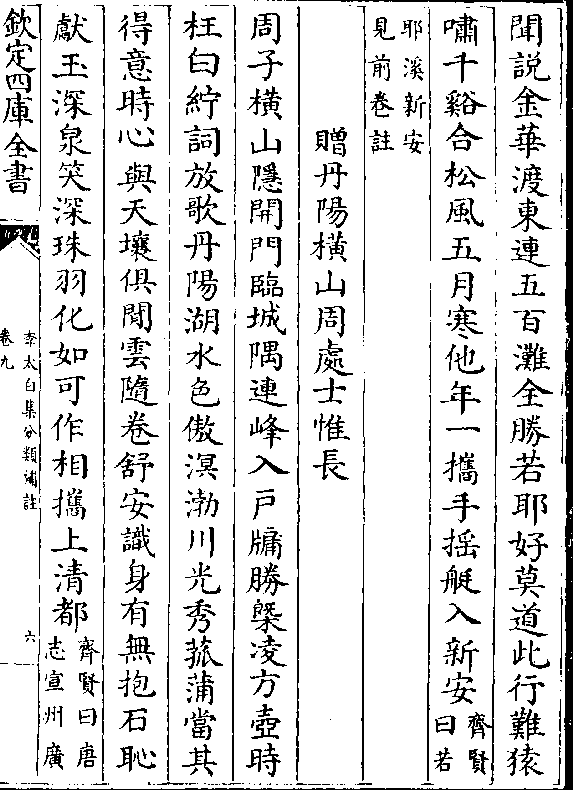 聞說金華渡東連五百灘全勝若耶好莫道此行難猿
嘯千谿合松風五月寒他年一攜手摇艇入新安齊賢曰若
耶溪新安見前卷註
贈丹陽橫山周處士惟長
周子橫山隱開門臨城隅連峰入戸牖勝槩凌方壺時
枉白紵詞放歌丹陽湖水色傲溟渤川光秀菰蒲當其
得意時心與天壤俱閒雲隨卷舒安識身有無抱石恥
獻玉深泉笑深珠羽化如可作相攜上清都齊賢曰唐志宣州廣
欽定四庫全書
李太白集分類補註
卷九
六